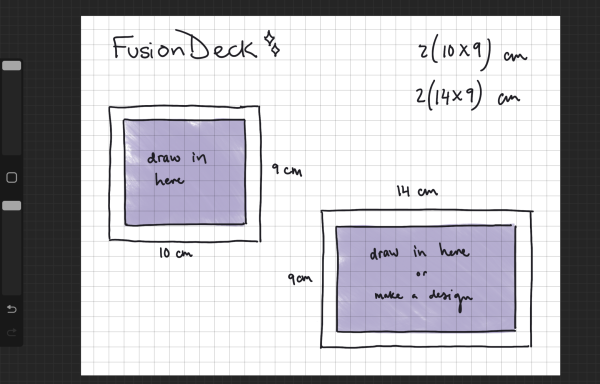 FusionDeck
2(10x9) cm
2(14x9) cm
draw in
here
9 cm
10 cm
14 cm
9cm
draw in here
or
make a design